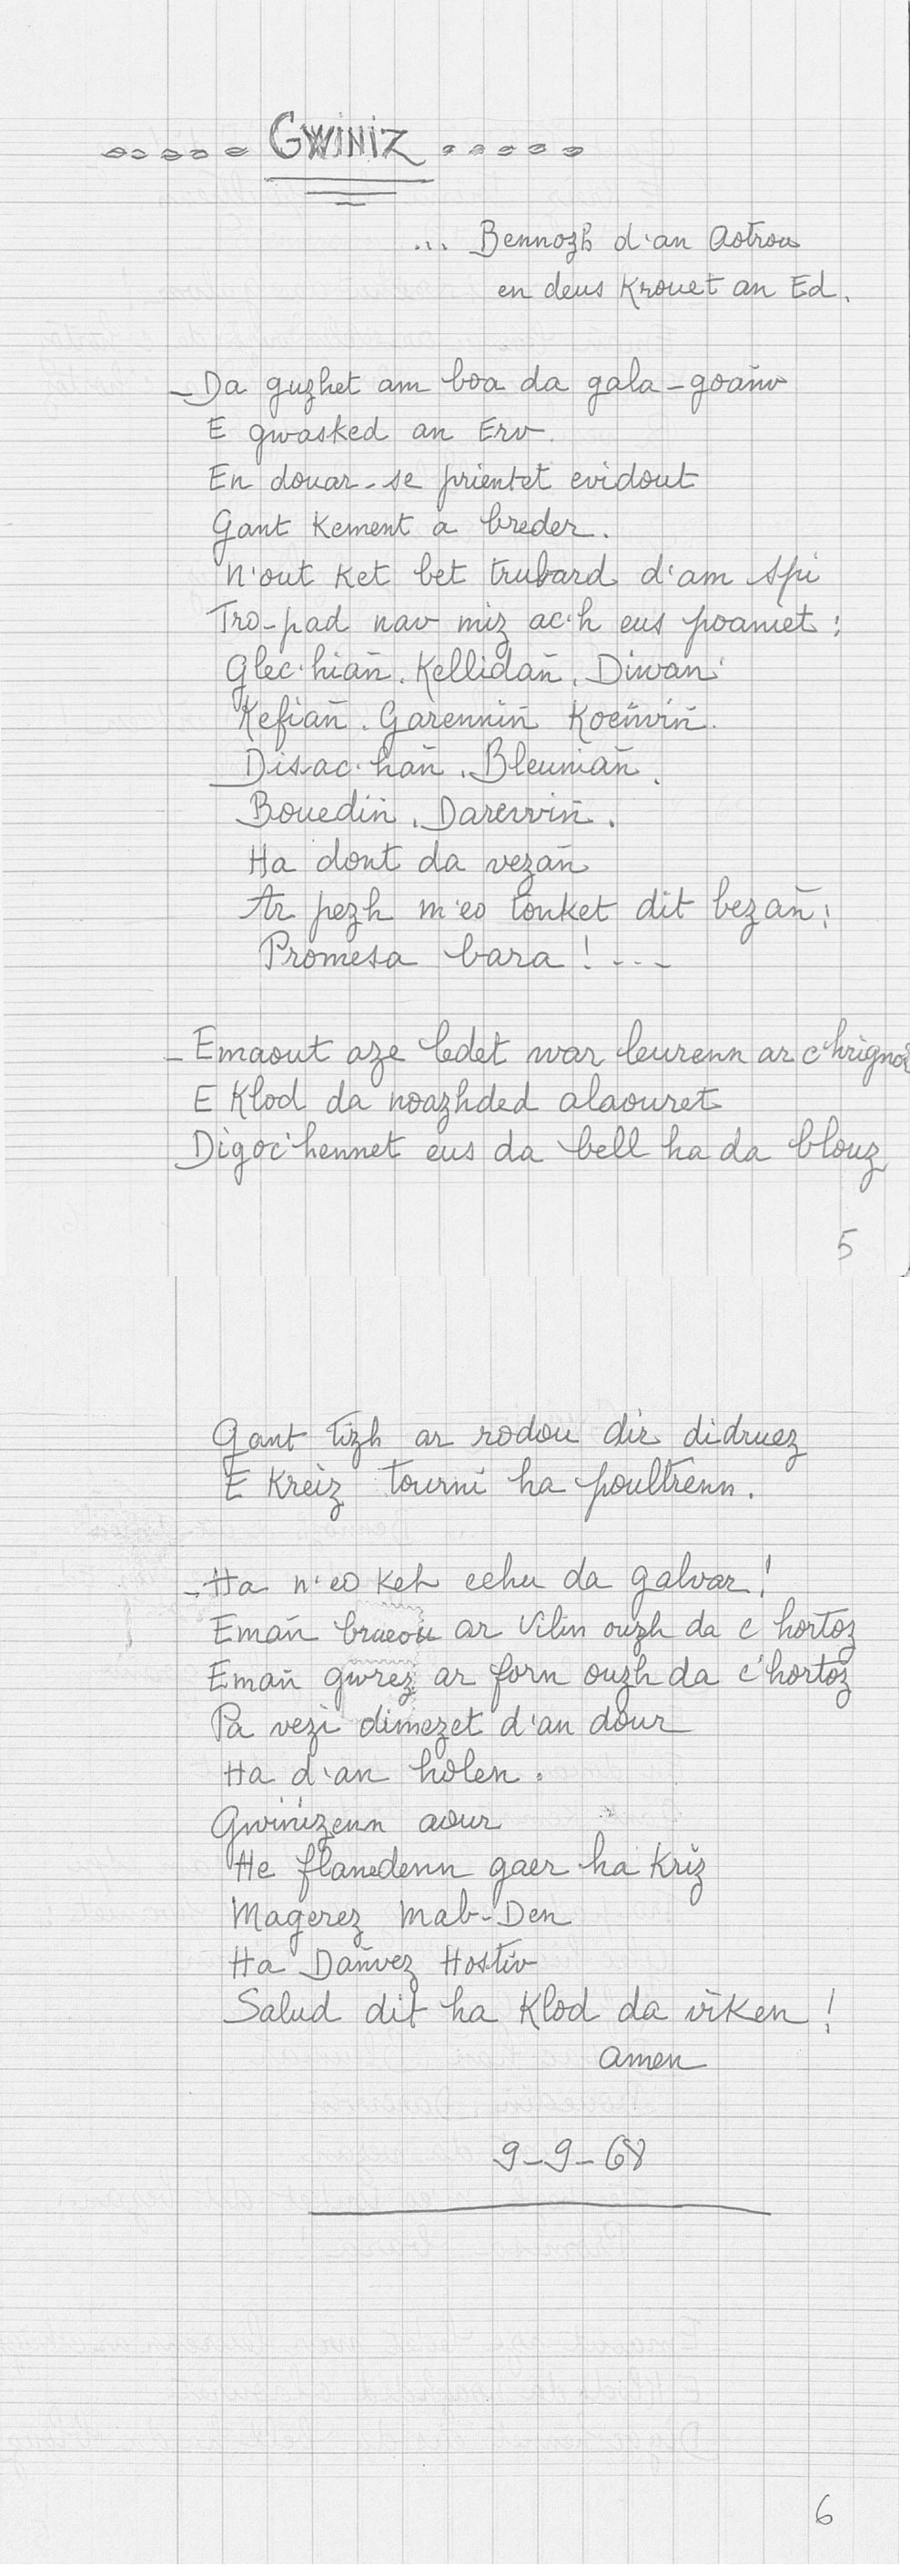 ..... GWINIZ .....
... Bennozh d'an Aotrou
en deus Krouet an Ed.
- Da guzhet am boa da gala-goañv
E gwasked an Erv.
En douar-se prientet evidout
Gant Kement a breder.
N'out Ket bet trubard d'am spi
Tro-pad nav miz ac'h eus poaniet :
Glec'hiañ. Kellidañ. Diwan.
Kefiañ. Garenniñ Koeñviñ.
Disac'hañ. Bleuniañ.
Bouediñ. Darevviñ.
Ha dont da vezañ
Ar pezh m'eo tonket dit bezañ :
Promesa bara ! ---
- Emaout aze ledet war leurenn ar c'hrignol
E Klod da noazhded alaouret
Digoc'hennet eus da bell ha da blouz
5
Gant tizh ar rodou dir didruez
E Kreiz tourni ha poultrenn.
- Ha n'eo Ket echu da galvar !
Emañ braeou ar Vilin ouzh da c'hortoz
Emañ gwrez ar forn ouzh da c'hortoz
Pa vezi dimezet d'an dour
Ha d'an holen.
Gwinizenn aour
He flanedenn gaer ha Kriz
Magerez Mab-Den
Ha Dañvez Hostiv
Salud dit ha Klod da viken !
Amen
9-9-68
6